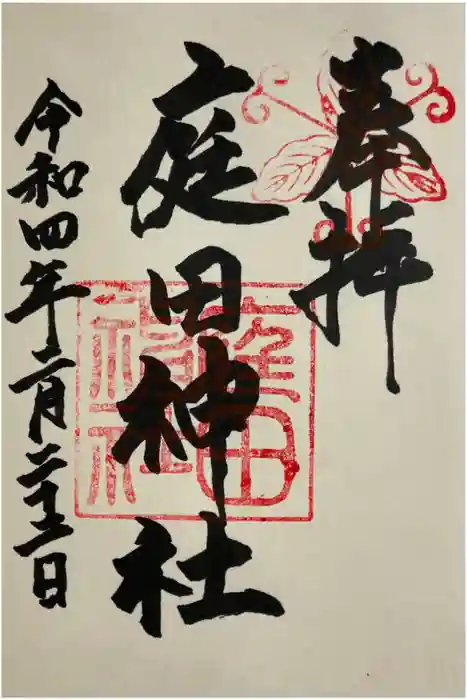 奉拝
庭田神社
令和四年二月二十二日
庭田
神社